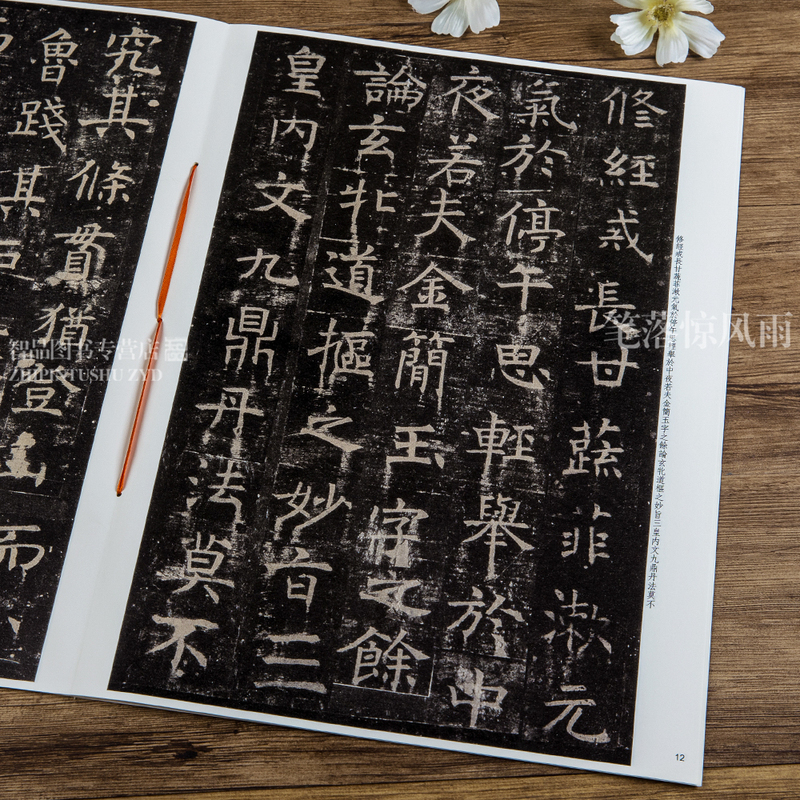 修經戒長甘蔬菲漱元
氣於停午思輕舉於中
夜若夫金簡玉字之餘
論玄牝道樞之妙旨三
皇内文九鼎丹法莫不
究其條貫猶登山而
魯踐其
修經戒長甘蔬菲漱元氣於停午思輕舉於中夜若夫金簡玉字之餘論玄牝道樞之妙旨三皇内文九鼎丹法莫不
12
笔落惊风雨
智品图书专营店
ZHIPINTUSHU ZYD